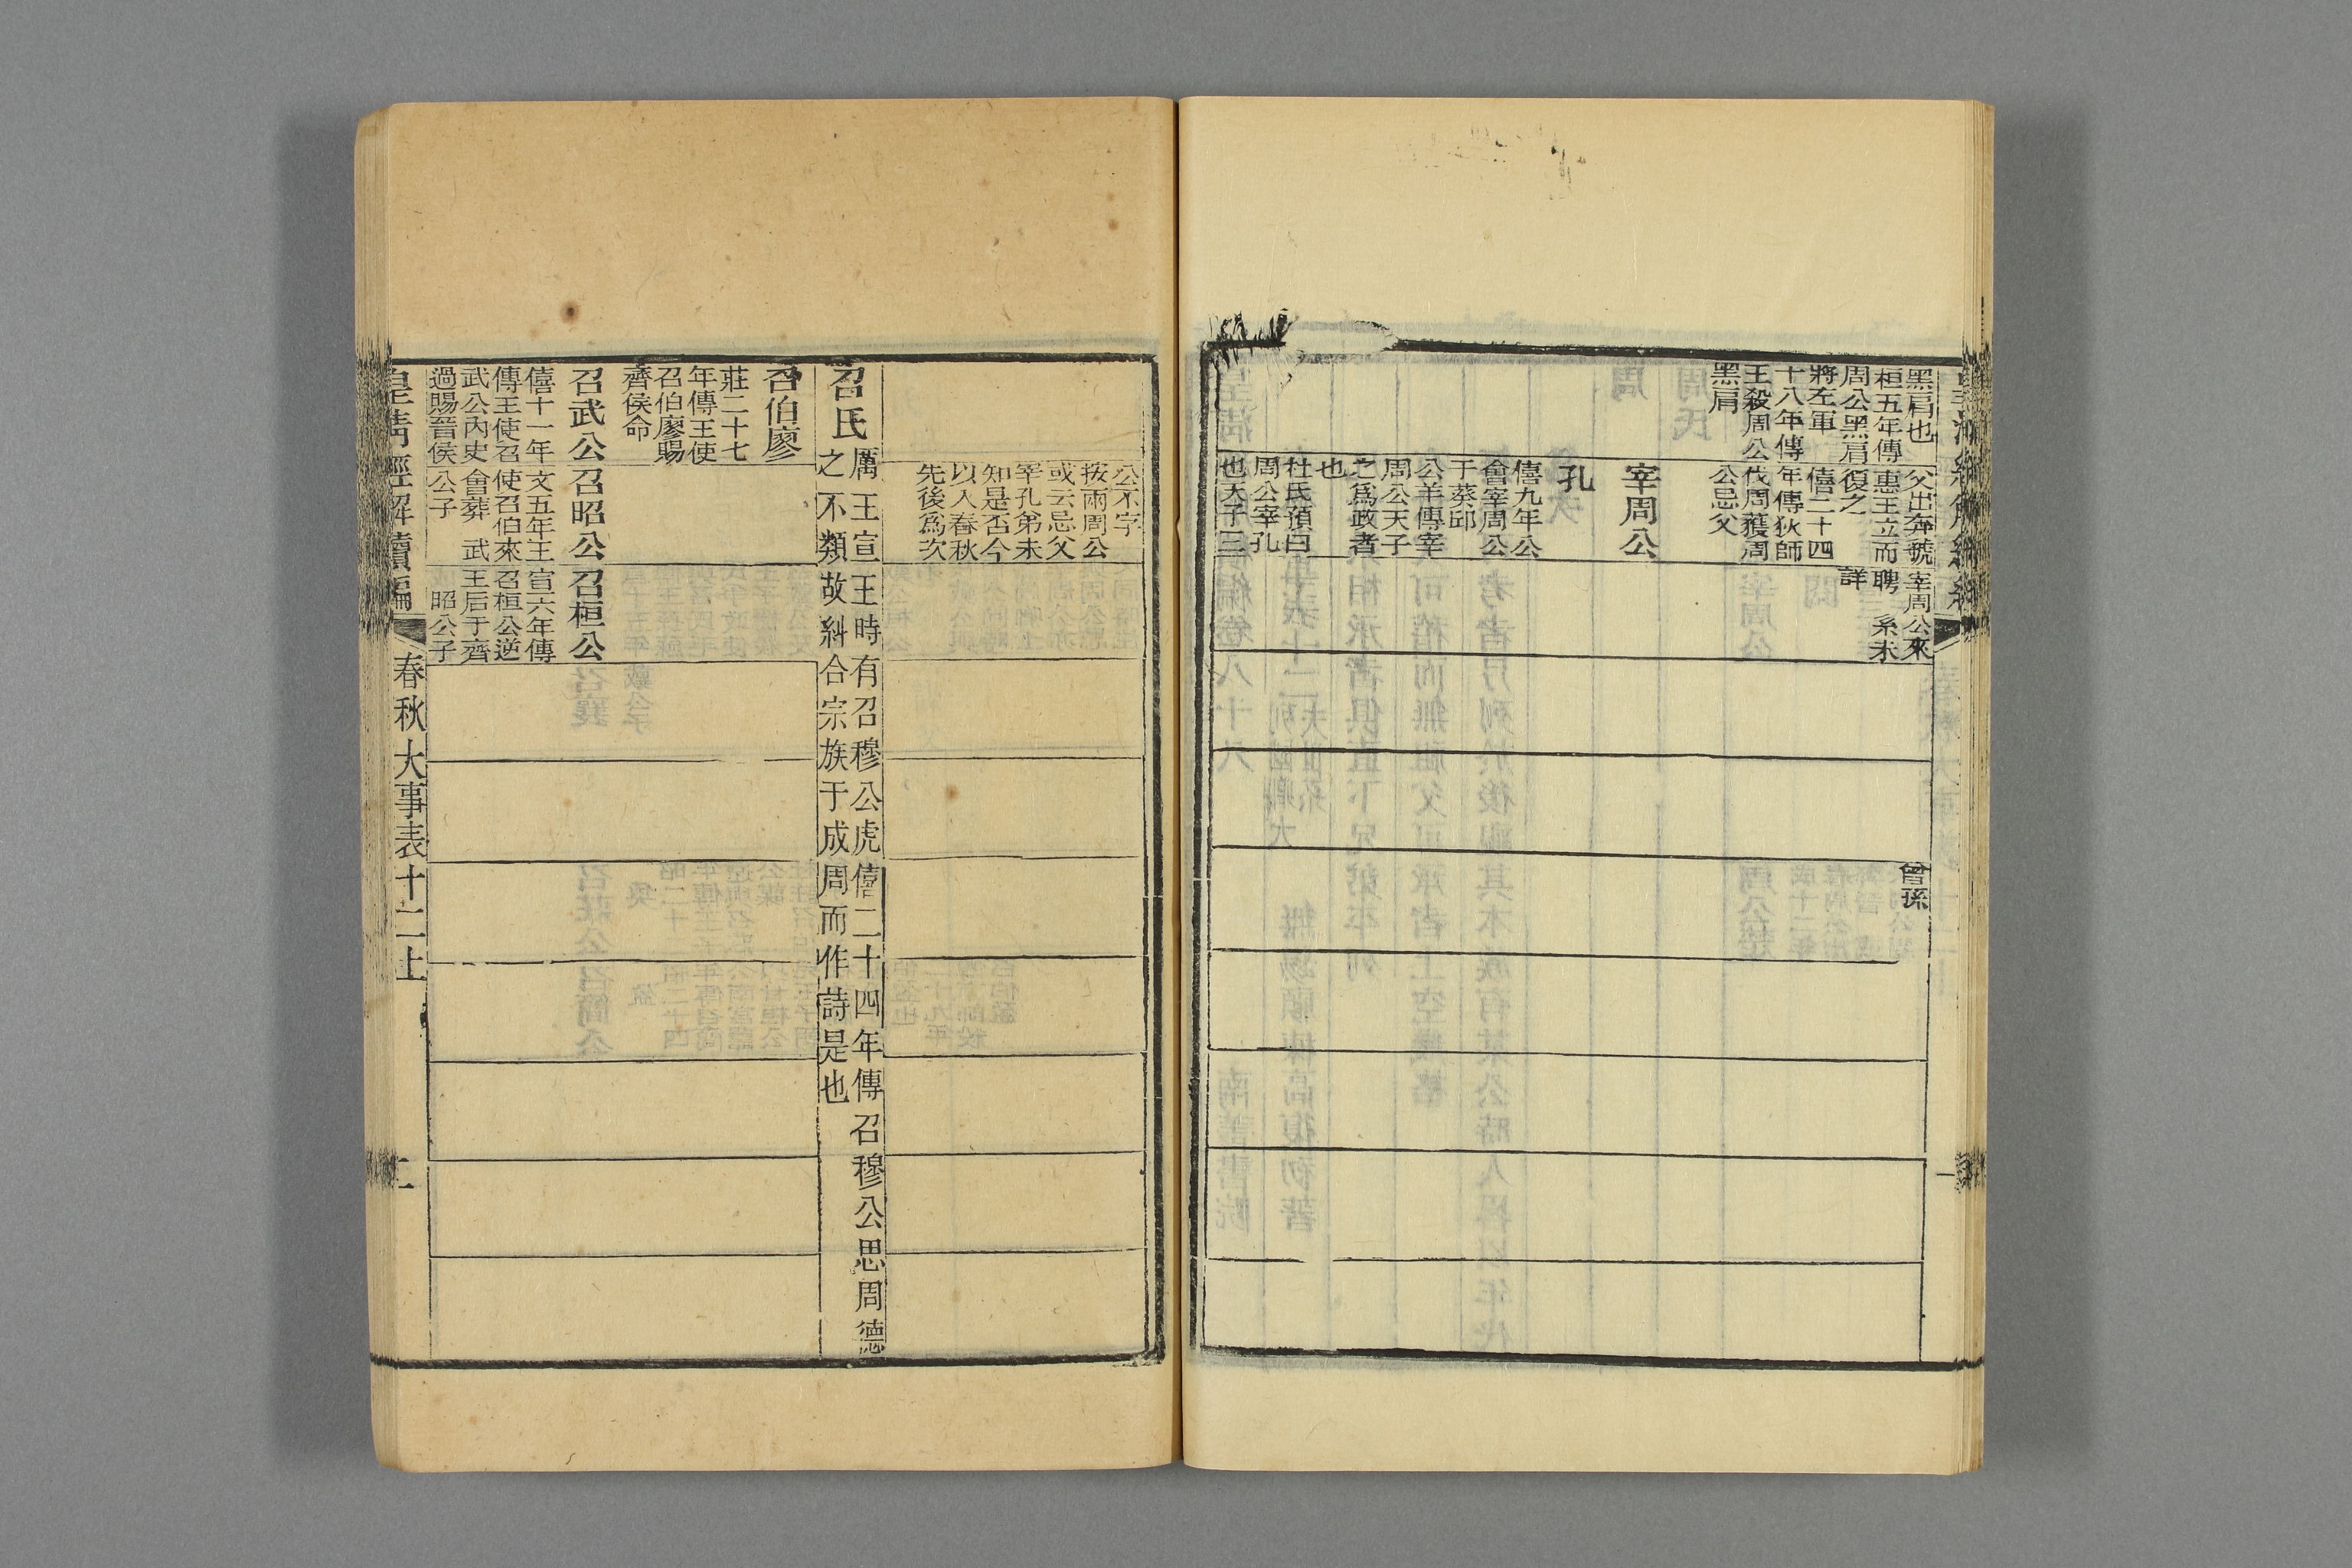 黑肩也
桓五年傳
周公黑肩
將左軍
十八年傳
王殺周公
黑肩
父出奔虢
惠王立而
復之
僖二十四
年傳狄師
伐周獲周
公忌父
宰周公來
聘　系未
詳
曾孫
宰周公
孔
僖九年公
會宰周公
于葵邱
公羊傳宰
周公天子
之爲政者
也
杜氏預曰
周公宰孔
也天子三
公不字
按兩周公
或云忌父
宰孔弟未
知是否今
以入春秋
先後爲次
召氏
厲王宣王時有召穆公虎僖二十四年傳召穆公思周德
之不類故糾合宗族于成周而作詩是也
召伯廖
莊二十七
年傳王使
召伯廖賜
齊侯命
召武公
僖十一年
傳王使召
武公內史
過賜晉侯
召昭公
文五年王
使召伯來
會葬　武
公子
召桓公
宣六年傳
召桓公逆
王后于齊
昭公子
皇清經解續編
春秋大事表十二上
二